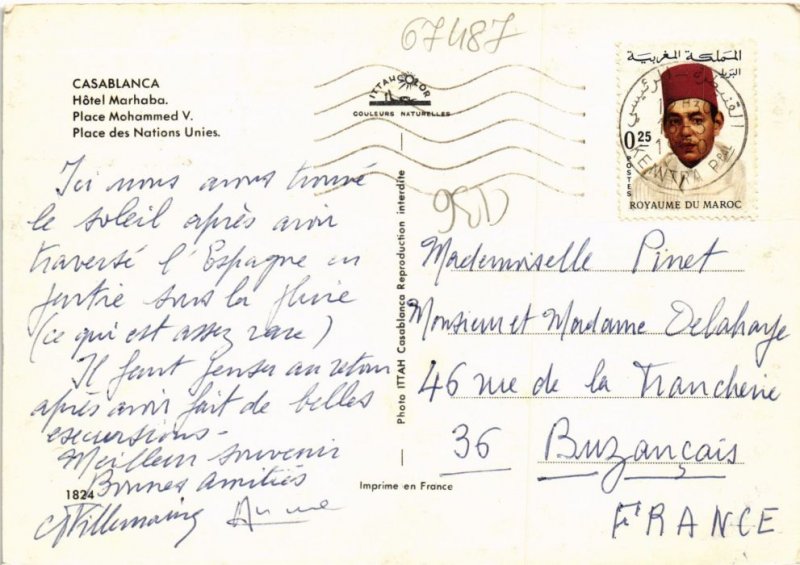 67487
CASABLANCA
Hôtel Marhaba.
Place Mohammed V.
Place des Nations Unies.
ITTAHCOLOR
COULEURS NATURELLES
المملكة المغربية
البريد
0.25
POSTES
ROYAUME DU MAROC
KENITRA Ppal
Ici nous avons trouvé
le soleil après avoir
traversé l'Espagne en
partie sous la pluie
(ce qui est assez rare)
Il faut penser au retour
après avoir fait de belles
excursions -
Meilleur souvenir
Bonnes Amitiés
1824
Photo ITTAH Casablanca Reproduction interdite
Imprime en France
Mademoiselle Pinet
Monsieur et Madame Delahaye
46 rue de la Trancherie
36 Buzançais
FRANCE